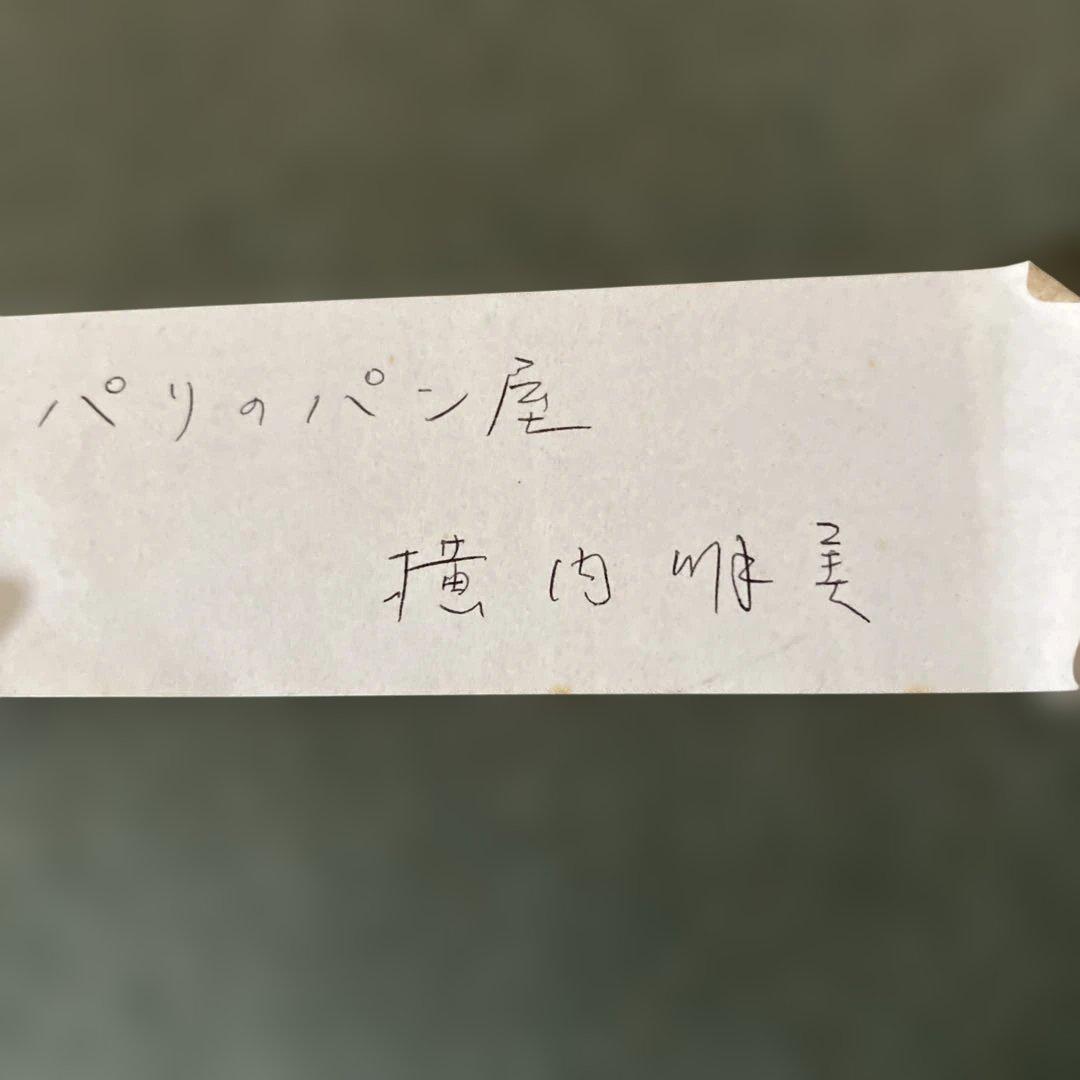 パリのパン屋
横内 美